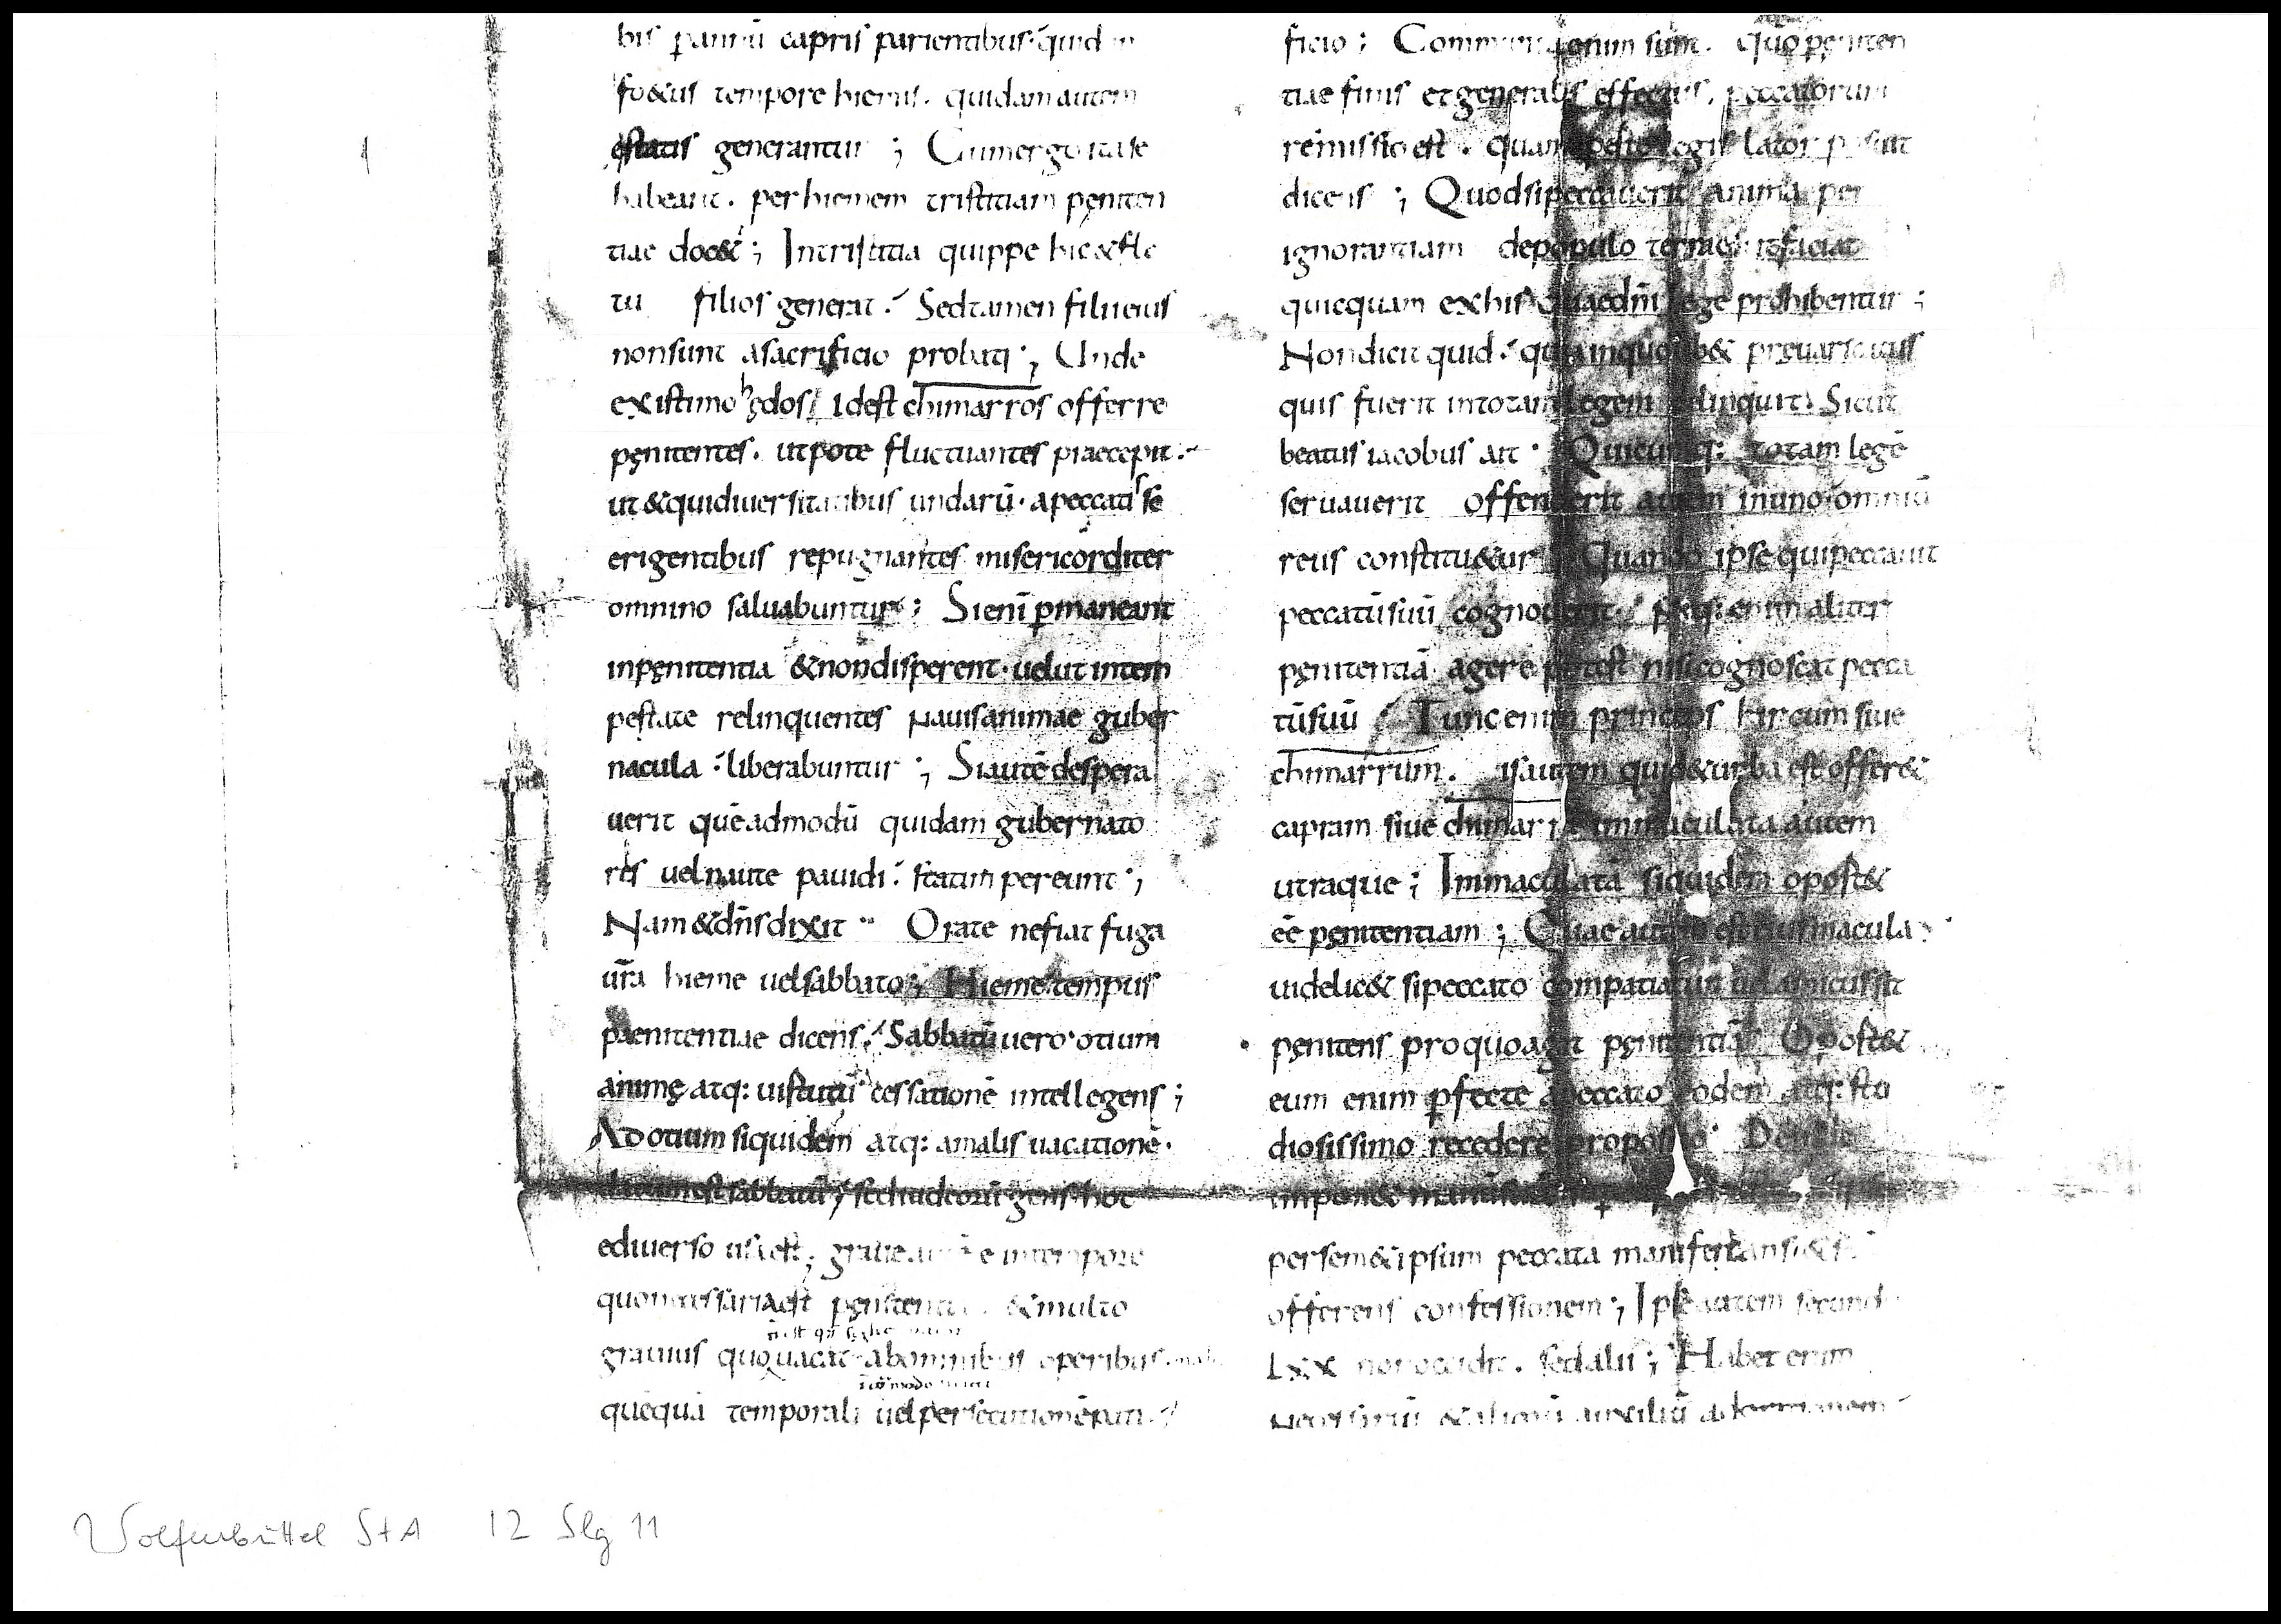 bis ꝑannū capris parientibus quid
fo&us tempore hiemis. quidam autem
ęstatis generantur ; Cum ergo ita se
habeant. per hiemem tristitiam pęniten
tiae doc& ; In tristitia quippe hic & fle
tu filios generat. Sed tamen filii eius
non sunt a sacrificio probati ; Unde
existimo hędos id est chimarros offerre
pęnitentes. utpote fluctuantes praecepit.
ut & qui diuersitatibus undarū. a peccatis se
erigentibus repugnantes misericorditer
omnino saluabuntur ; Si enī ꝑmaneant
in pęnitentia & non disperent. uelut in tem
pestate relinquentes nauis animae guber
nacula liberabuntur ; Si autē despera
uerit quēadmodū quidam gubernato
res uel naute pauidi. statim pereunt ;
Nam & dn̄s dixit Orate ne fiat fuga
ur̄a hieme uel sabbato ; Hieme tempus
paenitentiae dicens. Sabbatū uero otium
animę atq: uirtutū cessationē intellegens ;
Ad otium siquidem atq: a malis uacationē.
datum est sabbatū sed iudeorū gens hoc
e diuerso usa est ; graue e in tempore
quo necessaria est pęnitenti & multo
grauius quo uacat ab omnibus operibus
quēquā temporali uel persecutionē pati
ficio ; sunt. quo pęniten
tiae finis et generalis effectus. peccatorum
remissio est. legis lator posuit
dicens ; Quod si peccauerit anima per
ignorantiam de populo terrae ut faciat
quicquam ex his quae dn̄i lege prohibentur ;
Non dicit quid. quia in quolib& pręuaricatus
quis fuerit in totam legem delinquit. Sicut
beatus iacobus ait Quicumq: totam legē
seruauerit offenderit autem in uno omniū
reus constitu&ur Quando ipse qui peccauit
peccatū suū cognouerit. Neq: enim aliter
pęnitentiā agere potest nisi cognoscat pecca
tū suū Tunc enim princeps hircum siue
chimarrum. is autem qui de turba est offer&
capram siue immaculata autem
utraque ; Immaculatā siquidem oport&
ēē pęnitentiam ; Quae autem est eius macula
uidelic& si peccato compatiatur uel amicus sit
pęnitens pro quo agit pęnitentiā Oport&
eum enim ꝑfecte a peccato odem atq: stu
diosissimo recedere proposito
impon& manū
per sem&ipsum peccata manifestans
offerens confessionem ; Ipse autem secund
Lxx non occidit. sed alii ; Habet enim
& auxiliū
Wolfenbüttel StA 12 Slg 11